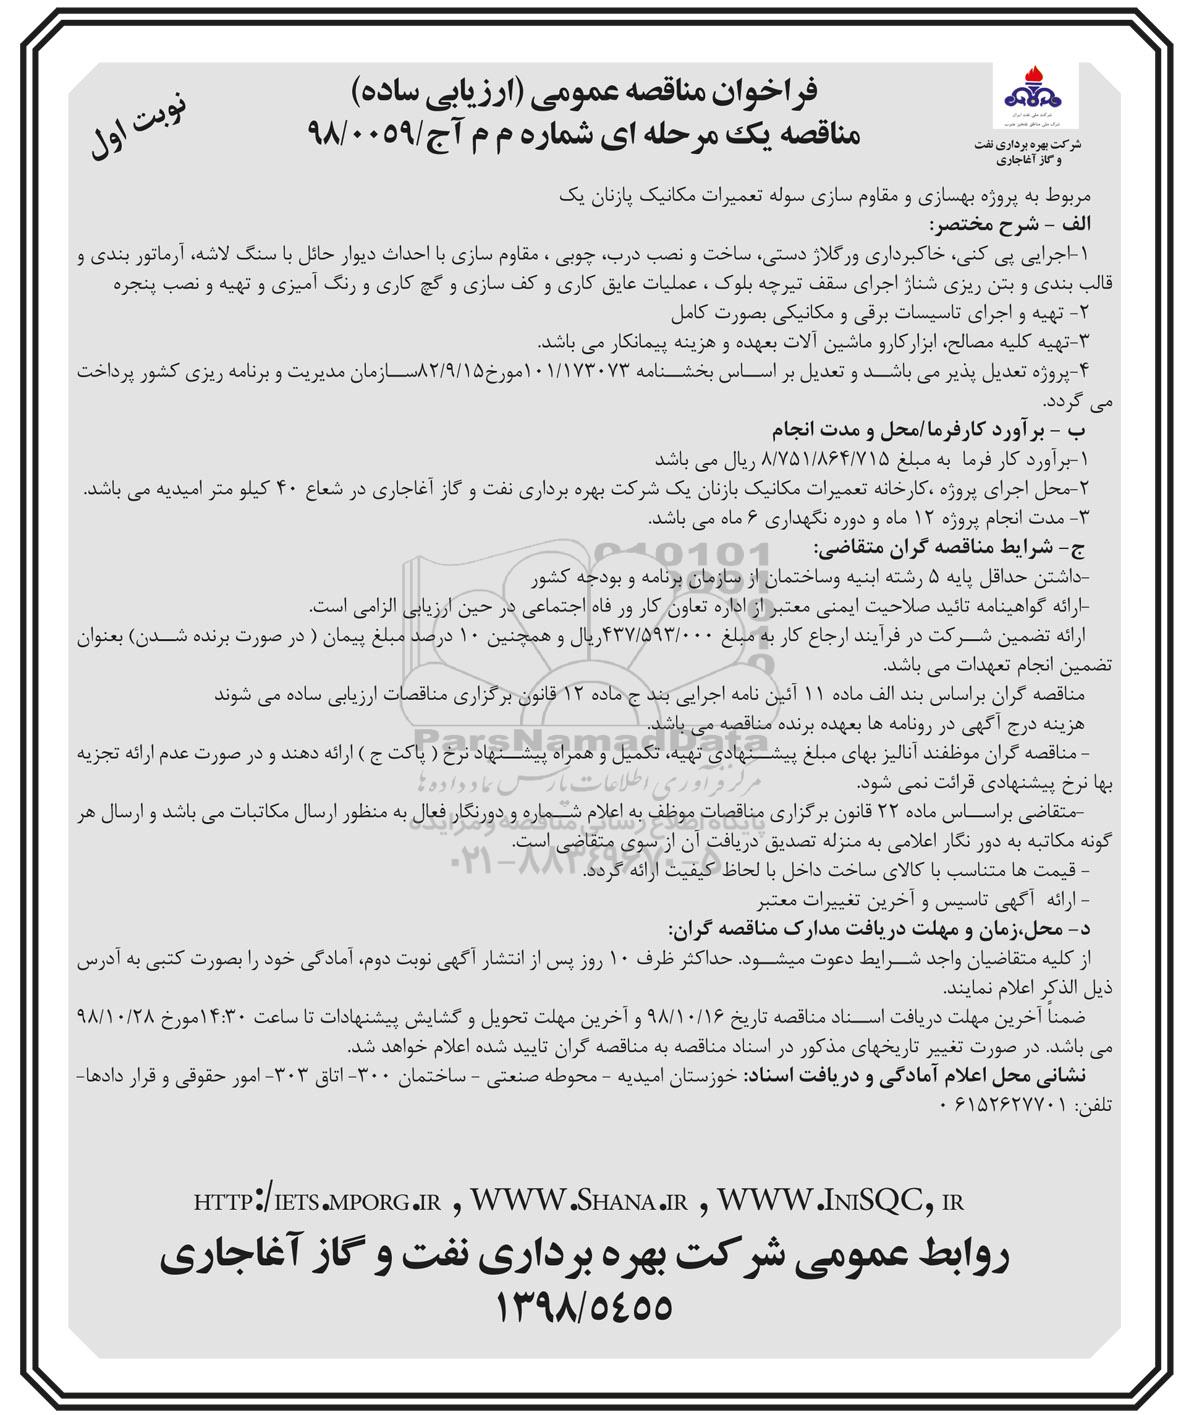 فراخوان مناقصه عمومی (ارزیابی ساده)
مناقصه یک مرحله ای شماره م م آج/۹۸/۰۰۵۹
نوبت اول
شرکت ملی نفت ایران
شرکت ملی مناطق نفتخیز جنوب
شرکت بهره برداری نفت
و گاز آغاجاری
مربوط به پروژه بهسازی و مقاوم سازی سوله تعمیرات مکانیک پازنان یک
الف - شرح مختصر:
۱-اجرایی پی کنی، خاکبرداری ورگلاژ دستی، ساخت و نصب درب، چوبی ، مقاوم سازی با احداث دیوار حائل با سنگ لاشه، آرماتور بندی و
قالب بندی و بتن ریزی شناژ اجرای سقف تیرچه بلوک ، عملیات عایق کاری و کف سازی و گچ کاری و رنگ آمیزی و تهیه و نصب پنجره
۲- تهیه و اجرای تاسیسات برقی و مکانیکی بصورت کامل
۳-تهیه کلیه مصالح، ابزارکارو ماشین آلات بعهده و هزینه پیمانکار می باشد.
۴-پروژه تعدیل پذیر می باشد و تعدیل بر اساس بخشنامه ۱۰۱/۱۷۳۰۷۳مورخ۸۲/۹/۱۵سازمان مدیریت و برنامه ریزی کشور پرداخت
می گردد.
ب - برآورد کارفرما/محل و مدت انجام
۱-برآورد کار فرما به مبلغ ۸/۷۵۱/۸۶۴/۷۱۵ ریال می باشد
۲-محل اجرای پروژه ،کارخانه تعمیرات مکانیک بازنان یک شرکت بهره برداری نفت و گاز آغاجاری در شعاع ۴۰ کیلو متر امیدیه می باشد.
۳- مدت انجام پروژه ۱۲ ماه و دوره نگهداری ۶ ماه می باشد.
ج- شرایط مناقصه گران متقاضی:
-داشتن حداقل پایه ۵ رشته ابنیه وساختمان از سازمان برنامه و بودجه کشور
-ارائه گواهینامه تائید صلاحیت ایمنی معتبر از اداره تعاون کار ور فاه اجتماعی در حین ارزیابی الزامی است.
ارائه تضمین شرکت در فرآیند ارجاع کار به مبلغ ۴۳۷/۵۹۳/۰۰۰ریال و همچنین ۱۰ درصد مبلغ پیمان ( در صورت برنده شدن) بعنوان
تضمین انجام تعهدات می باشد.
مناقصه گران براساس بند الف ماده ۱۱ آئین نامه اجرایی بند ج ماده ۱۲ قانون برگزاری مناقصات ارزیابی ساده می شوند
هزینه درج آگهی در رونامه ها بعهده برنده مناقصه می باشد.
ParsNamadData
- مناقصه گران موظفند آنالیز بهای مبلغ پیشنهادی تهیه، تکمیل و همراه پیشنهاد نرخ ( پاکت ج ) ارائه دهند و در صورت عدم ارائه تجزیه
بها نرخ پیشنهادی قرائت نمی شود.
مرکز فرآوری اطلاعات پارس نماد داده ها
-متقاضی براساس ماده ۲۲ قانون برگزاری مناقصات موظف به اعلام شماره و دورنگار فعال به منظور ارسال مکاتبات می باشد و ارسال هر
پایگاه اطلاع رسانی مناقصه و مزایده
گونه مکاتبه به دور نگار اعلامی به منزله تصدیق دریافت آن از سوی متقاضی است.
۰۲۱-۸۸۳۴۹۶۷۰-۵
- قیمت ها متناسب با کالای ساخت داخل با لحاظ کیفیت ارائه گردد.
- ارائه آگهی تاسیس و آخرین تغییرات معتبر
د- محل،زمان و مهلت دریافت مدارک مناقصه گران:
از کلیه متقاضیان واجد شرایط دعوت میشود. حداکثر ظرف ۱۰ روز پس از انتشار آگهی نوبت دوم، آمادگی خود را بصورت کتبی به آدرس
ذیل الذکر اعلام نمایند.
ضمناً آخرین مهلت دریافت اسناد مناقصه تاریخ ۹۸/۱۰/۱۶ و آخرین مهلت تحویل و گشایش پیشنهادات تا ساعت ۱۴:۳۰مورخ ۹۸/۱۰/۲۸
می باشد. در صورت تغییر تاریخهای مذکور در اسناد مناقصه به مناقصه گران تایید شده اعلام خواهد شد.
نشانی محل اعلام آمادگی و دریافت اسناد: خوزستان امیدیه - محوطه صنعتی - ساختمان ۳۰۰- اتاق ۳۰۳- امور حقوقی و قرار دادها-
تلفن: ۶۱۵۲۶۲۷۷۰۱ ۰
HTTP:/IETS.MPORG.IR , WWW.SHANA.IR , WWW.INISQC, IR
روابط عمومی شرکت بهره برداری نفت و گاز آغاجاری
۱۳۹۸/۵٤۵۵